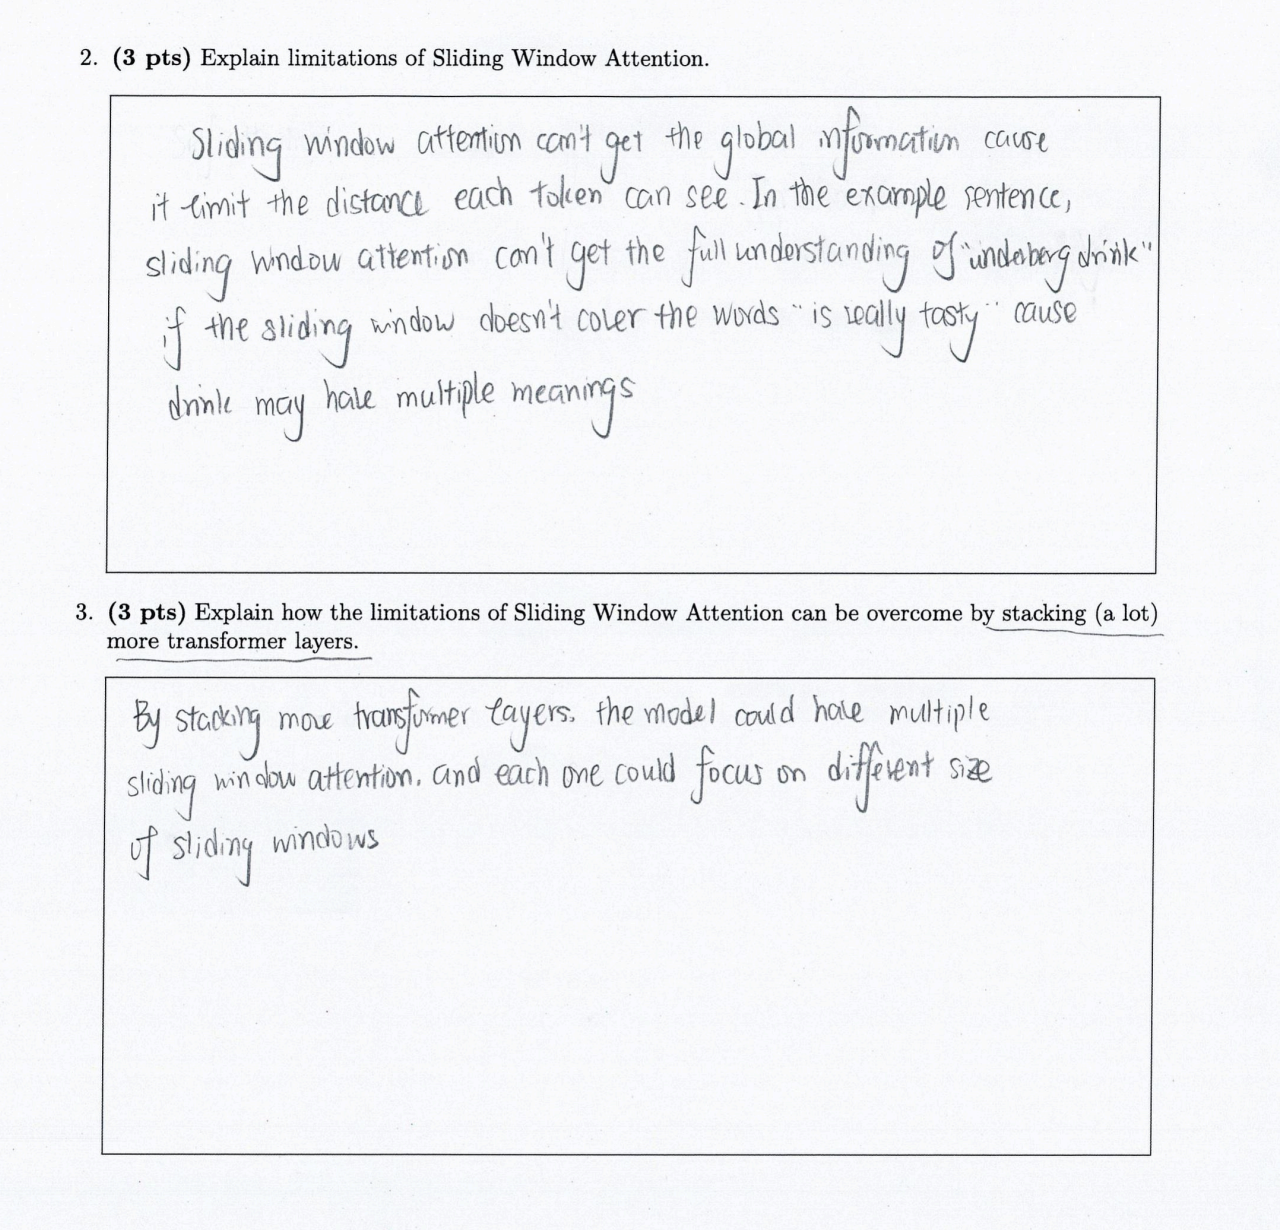 2. (3 pts) Explain limitations of Sliding Window Attention.
Sliding window attention can't get the global information cause
it limit the distance each token can see. In the example sentence,
sliding window attention can't get the full understanding of "underberg drink"
if the sliding window doesn't cover the words "is really tasty" cause
drink may have multiple meanings
3. (3 pts) Explain how the limitations of Sliding Window Attention can be overcome by stacking (a lot)
more transformer layers.
By stacking more transformer layers, the model could have multiple
sliding window attention, and each one could focus on different size
of sliding windows